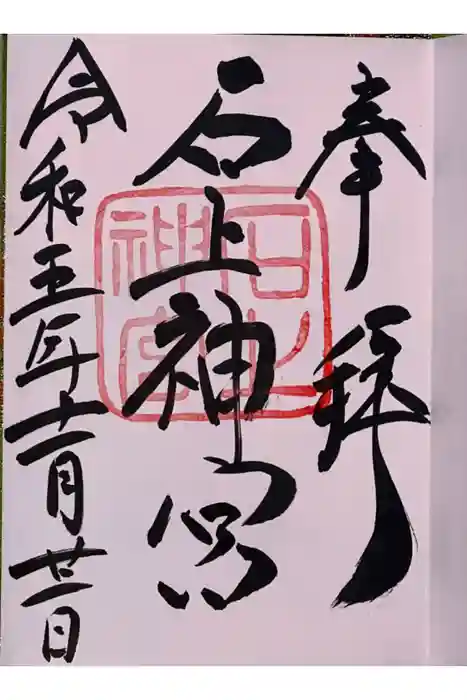 奉拝
石上神宮
石上神宮
令和五年十一月廿二日